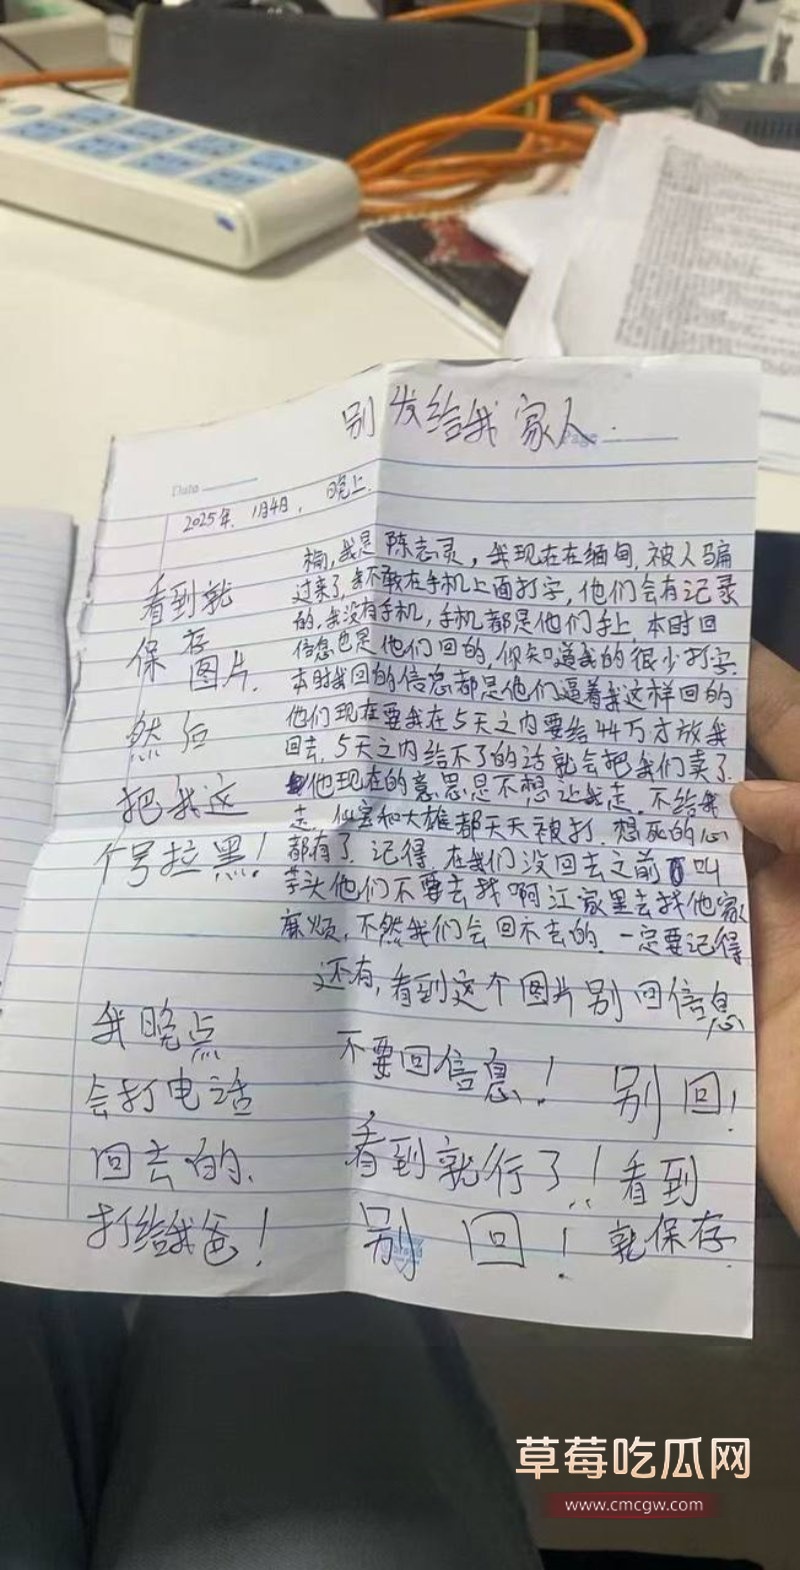 别发给我家人.
Page
Date
2025年. 1月4日, 晚上.
楠, 我是陈志灵, 我现在在缅甸, 被人骗
过来了, 我不敢在手机上面打字, 他们会有记录
的, 我没有手机, 手机都是他们手上, 本时回
信息也是他们回的, 你知道我的很少打字.
本时我回的信息都是他们逼着我这样回的
他们现在要我在5天之内要给44万才放我
回去, 5天之内给不了的话就会把我们卖了.
他现在的意思是不想让我走, 不给我
走, 仙宝和大雄都天天被打, 想死的心
都有了, 记得, 在我们没回去之前叫
他们不要去找啊江家里去找他家
麻烦, 不然我们会回不去的, 一定要记得
还有, 看到这个图片别回信息
不要回信息! 别回!
看到就行了! 看到
别回! 就保存.
看到就
保存
图片.
然后
把我这
个号拉黑!
我晚点
会打电话
回去的.
打给我爸!
草莓吃瓜网
www.cmcgw.com